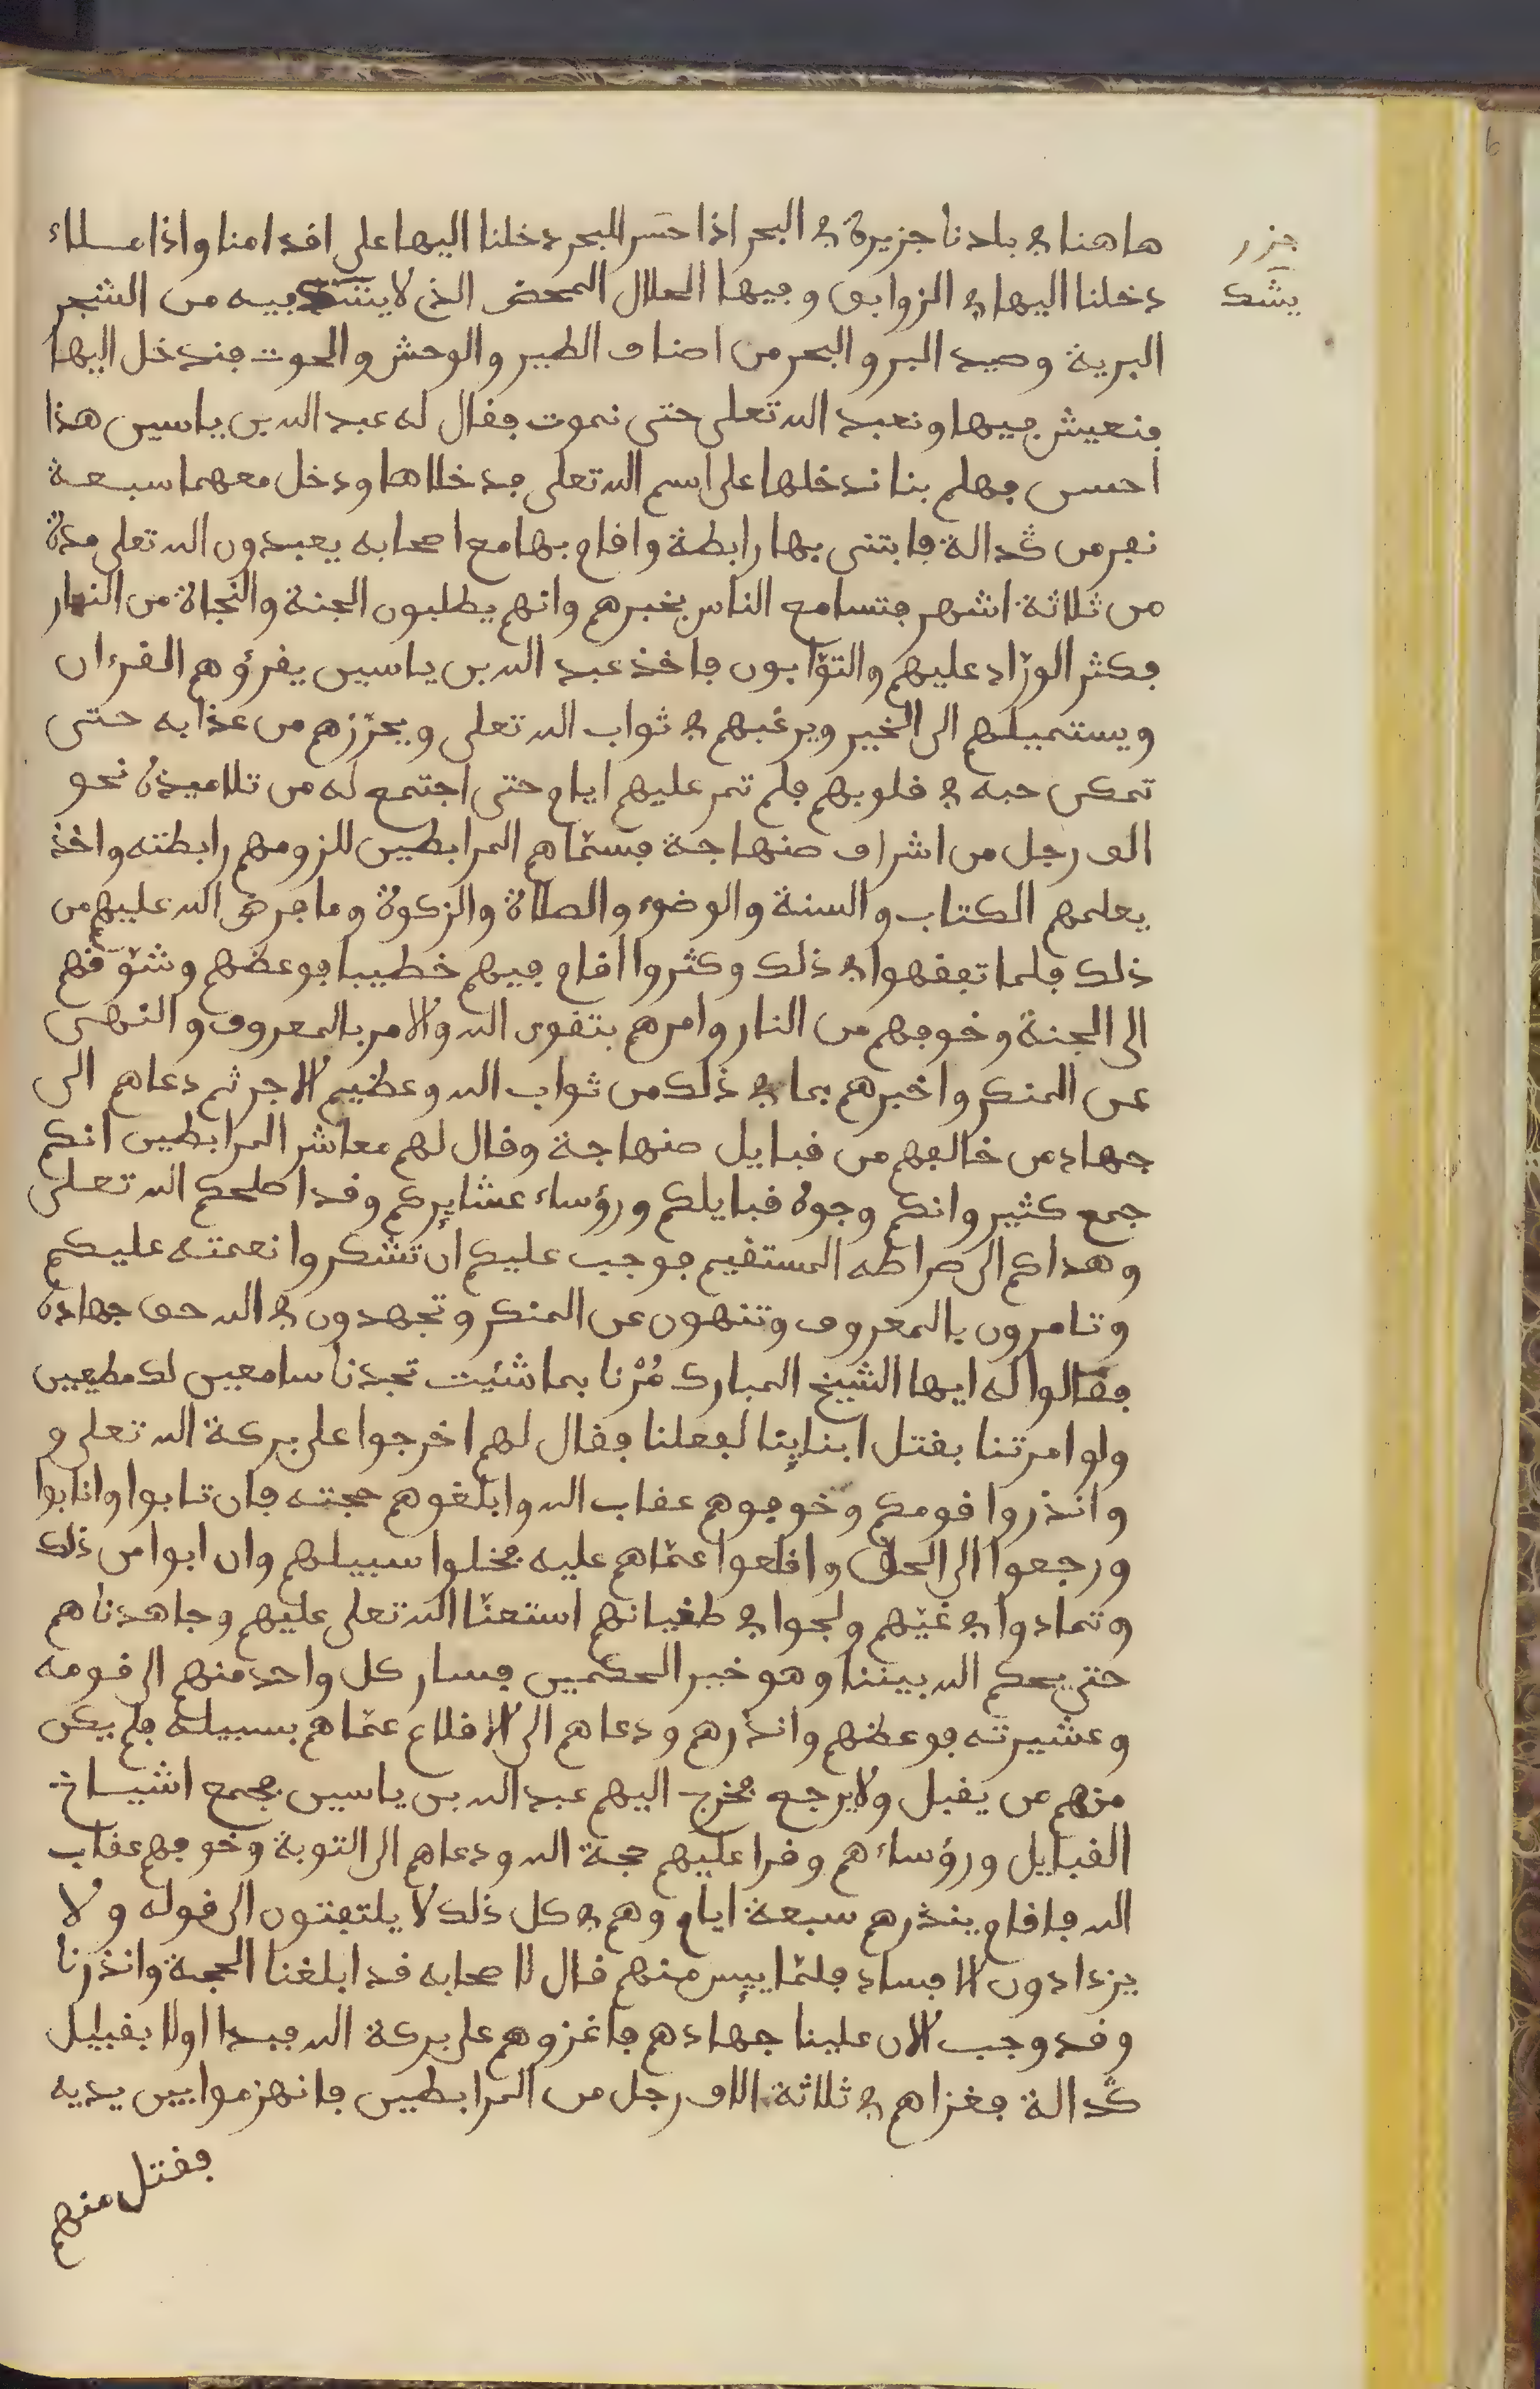 هاهنا في بلدنا جزيرة في البحر اذا حسر البحر دخلنا اليها على اقدامنا واذا ملاء
جزر
دخلنا اليها في الزوارق وفيها الحلال المحض الذي لا يشك فيه من الشجر
يشك
البرية وصيد البر والبحر من اصناف الطير والوحش والحوت فندخل اليها
فنعيش فيها ونعبد الله تعلى حتى نموت فقال له عبد الله بن ياسين هذا
احسن فهلم بنا ندخلها على اسم الله تعلى فدخلاها ودخل معهما سبعة
نفر من ݣدالة فابتنى بها رابطة واقام بها مع اصحابه يعبدون الله تعلى مدة
من ثلاثة اشهر فتسامع الناس بخبرهم وانهم يطلبون الجنة والنجاة من النار
فكثر الورّاد عليهم والتوّابون فاخذ عبد الله بن ياسين يقرؤهم القرءان
ويستميلهم الى الخير ويرغبهم في ثواب الله تعلى ويحرّزهم من عذابه حتى
تمكن حبه في قلوبهم فلم تمر عليهم ايام حتى اجتمع له من تلاميذه نحو
الف رجل من اشراف صنهاجة فسمّاهم المرابطين للزومهم رابطته واخذ
يعلمهم الكتاب والسنة والوضوء والصلاة والزكوة وما فرض الله عليهم من
ذلك فلما تفقهوا في ذلك وكثروا اقام فيهم خطيبا فوعظهم وشوّقهم
الى الجنة وخوفهم من النار وامرهم بتقوى الله والامر بالمعروف والنهي
عن المنكر واخبرهم بما في ذلك من ثواب الله وعظيم الاجر ثم دعاهم الى
جهاد من خالفهم من قبايل صنهاجة وقال لهم معاشر المرابطين انكم
جمع كثير وانكم وجوه قبايلكم ورؤساء عشايركم وقد اصلحكم الله تعلى
وهداكم الى صراطه المستقيم فوجب عليكم ان تشكروا نعمته عليكم
وتامرون بالمعروف وتنهون عن المنكر وتجهدون في الله حق جهاده
فقالوا له ايها الشيخ المبارك مُرْنا بما شئيت تجدنا سامعين لك مطيعين
ولو امرتنا بقتل ابناينا لفعلنا فقال لهم اخرجوا على بركة الله تعلى و
وانذروا قومكم وخوفوهم عقاب الله وابلغوهم حجته فان تابوا وانابوا
ورجعوا الى الحق واقلعوا عمّاهم عليه فخلوا سبيلهم وان ابوا من ذلك
وتمادوا في غيّهم ولجوا في طغيانهم استعنّا الله تعلى عليهم وجاهدناهم
حتى يحكم الله بيننا وهو خير الحكمين فسار كل واحد منهم الى قومه
وعشيرته فوعظهم وانذرهم ودعاهم الى الاقلاع عمّاهم بسبيله فلم يكن
منهم من يقبل ولا يرجع فخرج اليهم عبد الله بن ياسين فجمع اشياخ
القبايل ورؤساءهم وقرا عليهم حجة الله ودعاهم الى التوبة وخوفهم عقاب
الله فاقام ينذرهم سبعة ايام وهم في كل ذلك لا يلتفتون الى قوله ولا
يزدادون الا فساد فلمّا ييس منهم قال لاصحابه قد ابلغنا الحجة وانذرنا
وقد وجب الان علينا جهادهم فاغزوهم على بركة الله فبدا اولا بقبيل
ݣدالة فغزاهم في ثلاثة الاف رجل من المرابطين فانهزموا بين يديه
فقتل منهم